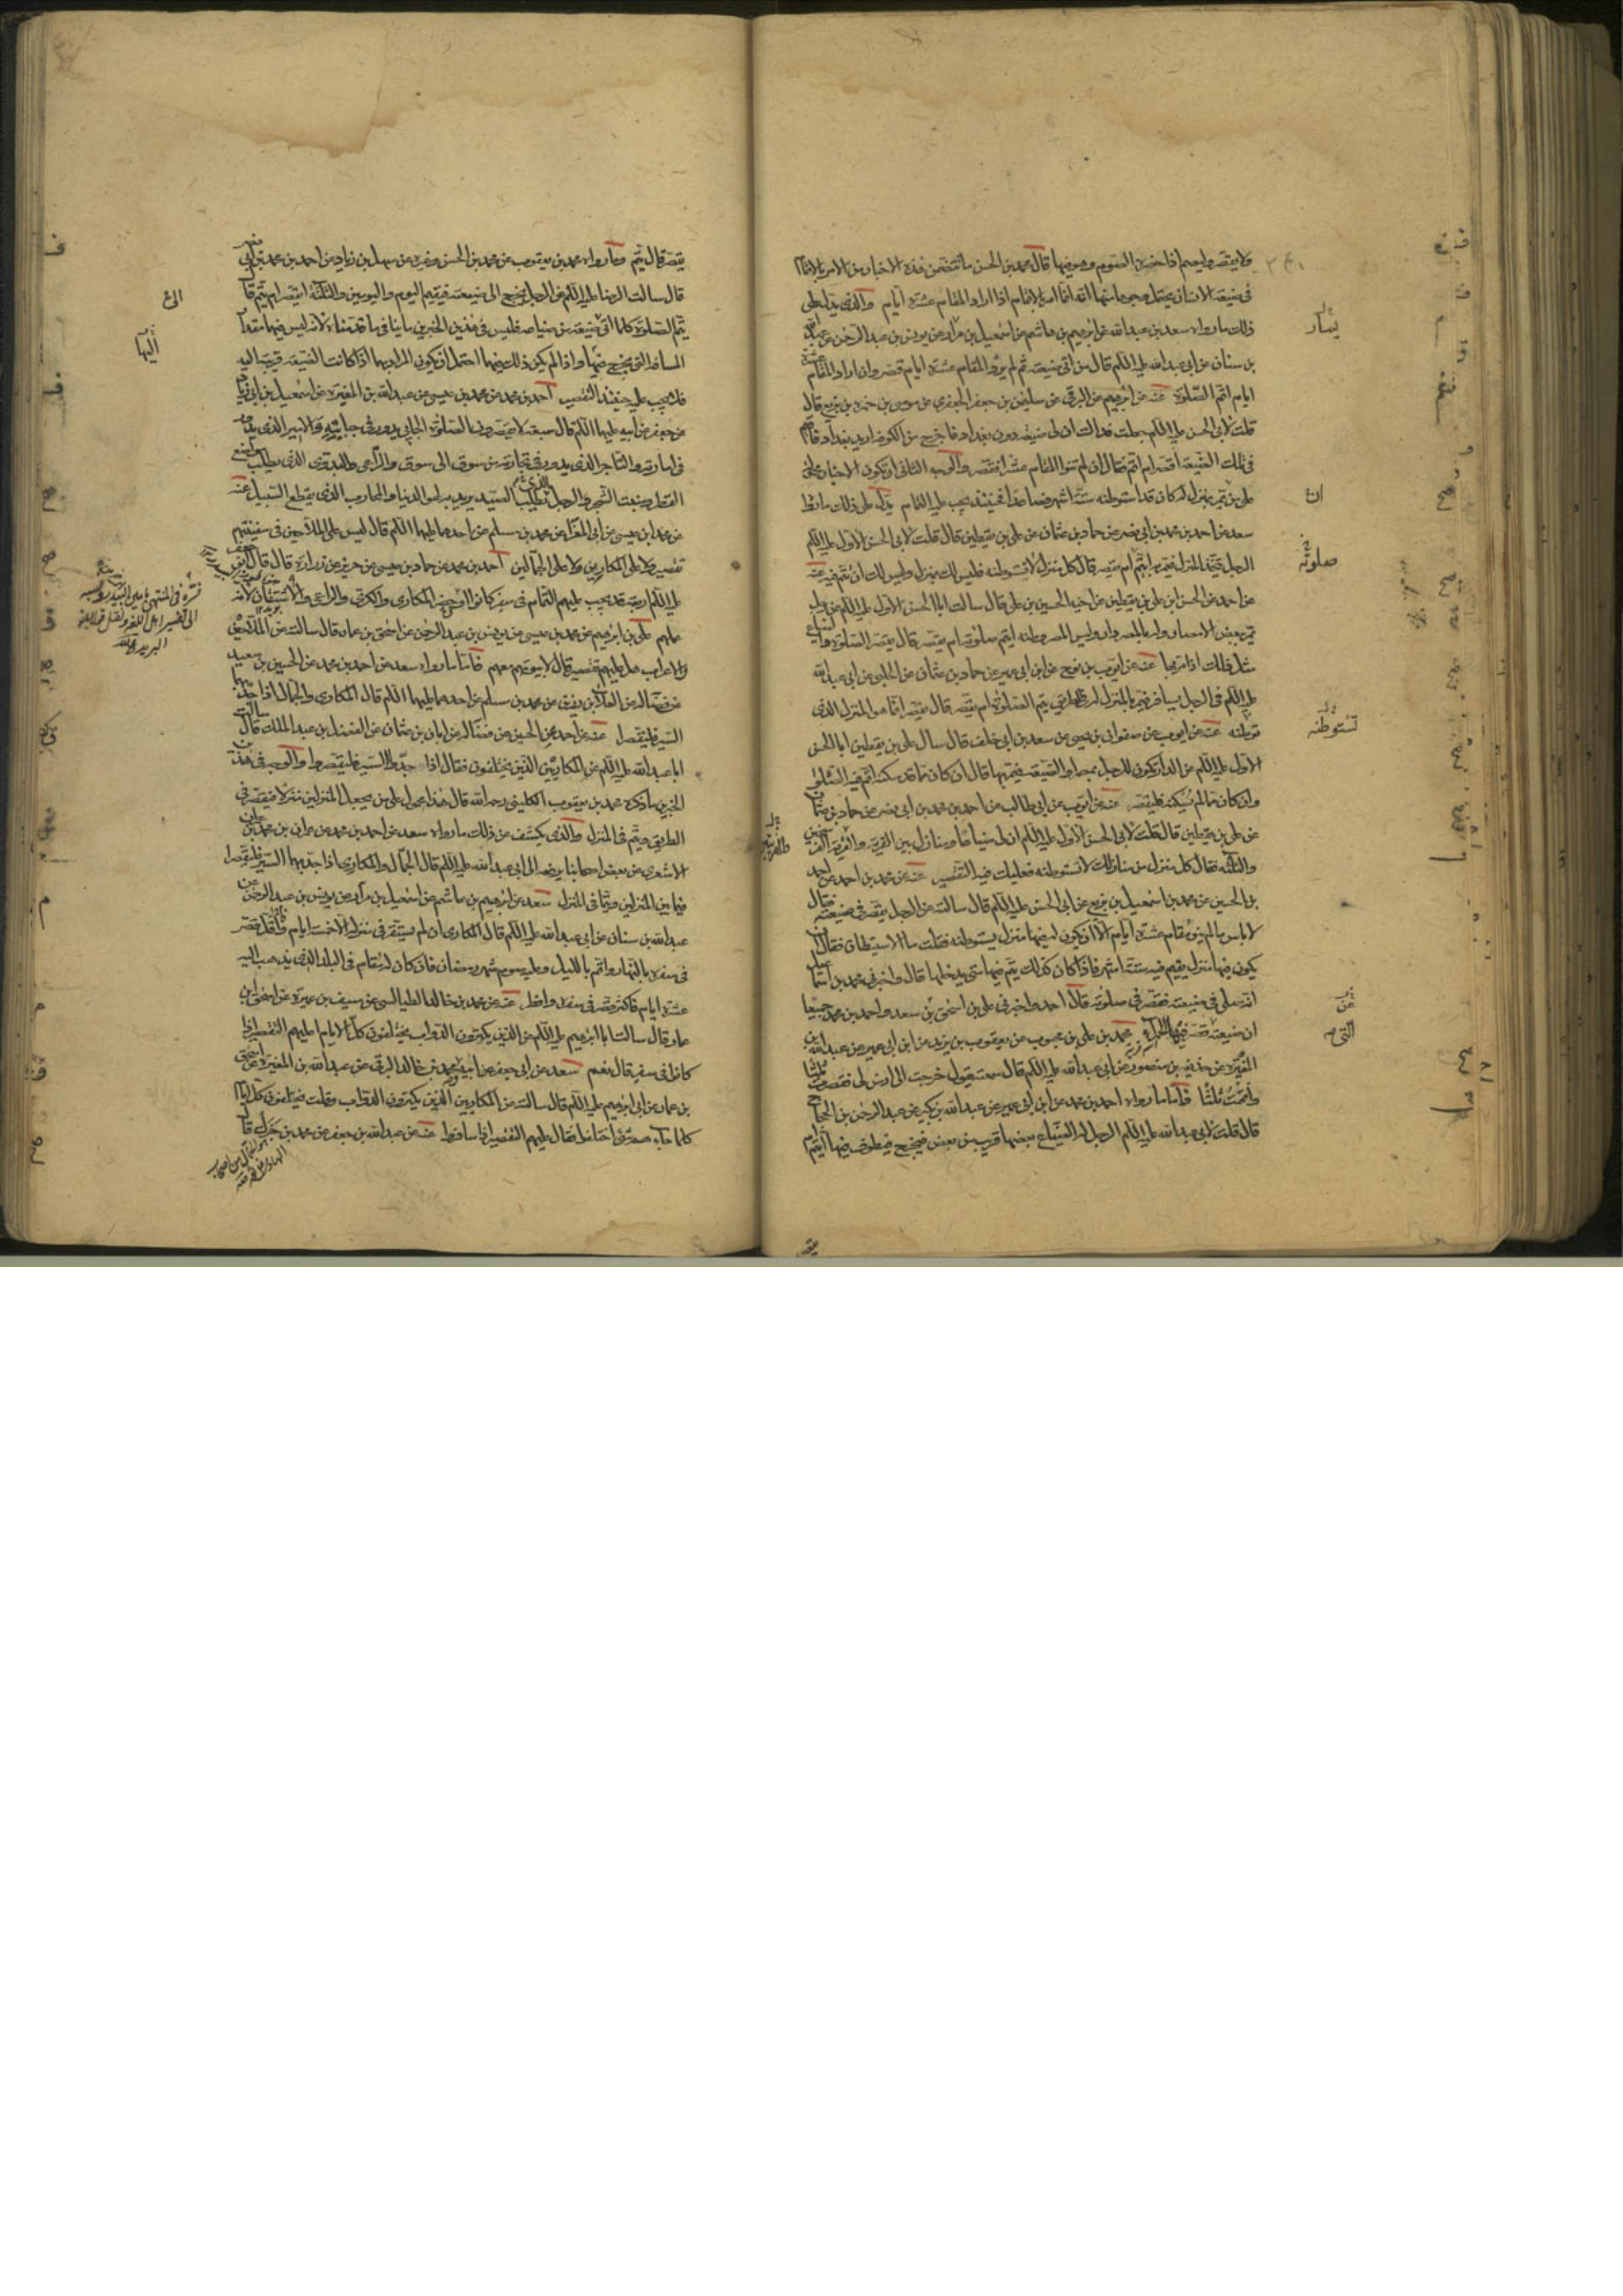 ولا يقصر وليصم اذا حضره الصوم وهو فيها قال محمد بن الحسن ما تتضمن هذه الاخبار من الامر بالاتمام
في ضيعة الانسان يحتمل وجهها منها انه انما امر بالاتمام اذا اراد المقام عشرة ايام والذي يدل على
ذلك ما رواه سعد بن عبدالله عن ابرهيم بن هاشم عن اسمعيل بن مرار عن يونس بن عبد الرحمن عن عبدالله
بن سنان عن ابى عبدالله عليه السلم قال من اتى ضيعته ثم لم يرد المقام عشرة ايام قصر وان اراد المقام عشرة
ايام اتم الصلوة عنه عن ابرهيم عن البرقى عن سليمن بن جعفر الجعفرى عن موسى بن حمزه بن بزيع قال
قلت لابى الحسن عليه السلم جعلت فداك ان لى ضيعة دون بغداد فاخرج من الكوفه اريد بغداد فاقيم
في تلك الضيعة اقصر ام اتم فقال ان لم تنو المقام عشرا فقصر والوجه الثانى ان تكون الاخبار
على من يمر بمنزل له كان قد استوطنه ستة اشهر فصاعدا فحينئذ يجب عليه التمام يدل على ذلك ما رواه
سعد عن احمد بن محمد بن ابى نصر عن حماد بن عثمان عن على بن يقطين قال قلت لابى الحسن الاول عليه السلم
الرجل يتخذ المنزل فيمر به ايتم ام يقصر قال كل منزل لا تستوطنه فليس لك بمنزل وليس لك ان تتم فيه عنه
عن احمد عن الحسن بن على بن يقطين عن اخيه الحسين بن على قال سالت ابا الحسن الاول عليه السلم عن رجل
يمر ببعض الامصار وله بالمصر دار وليس المصر وطنه ايتم صلوته ام يقصر قال يقصر الصلوة والضياع
مثل ذلك اذا مر بها عنه عن ايوب بن نوح عن ابن ابى عمير عن حماد بن عثمان عن الحلبى عن ابى عبدالله
عليه السلم في الرجل يسافر فيمر بالمنزل له في الطريق يتم الصلوة ام يقصر قال يقصر انما هو المنزل الذى
توطنه عنه عن ايوب عن صفوان بن يحيى عن سعد بن ابى خلف قال سال على بن يقطين ابا الحسن
الاول عليه السلم عن الدار تكون للرجل بمصر او الضيعة فيمر بها قال ان كان مما قد سكنه اتم فيه الصلوة
وان كان مما لم يسكنه فليقصر عنه عن ايوب عن ابى طالب عن احمد بن محمد بن ابى نصر عن حماد بن عثمان
عن على بن يقطين قال قلت لابى الحسن الاول عليه السلم ان لى ضياعا ومنازل بين القرية والقرية الفرسخين
والثلثه فقال كل منزل من منازلك لا تستوطنه فعليك فيه التقصير عنه عن محمد بن احمد عن احمد
بن الحسين عن محمد بن اسمعيل بن بزيع عن ابى الحسن عليه السلم قال سالته عن الرجل يقصر في ضيعته فقال
لا باس ما لم ينو مقام عشرة ايام الا ان يكون له فيها منزل يستوطنه فقلت ما الاستيطان فقال ان
يكون فيها منزل يقيم فيه ستة اشهر فاذا كان كذلك يتم فيها متى يدخلها قال واخبرنى محمد بن اسمعيل
انه صلى في ضيعته فقصر في صلوته قال احمد واخبرنى على بن اسحق بن سعد واحمد بن محمد جميعا
ان ضيعته التى قصر فيها الحمراء محمد بن على بن محبوب عن يعقوب بن يزيد عن ابن ابى عمير عن عبدالله بن
المغيرة عن حذيفه بن منصور عن ابى عبدالله عليه السلم قال سمعته يقول خرجت الى ارض لى فقصرت ثلثا
واتممت ثلثا فاما ما رواه احمد بن محمد عن ابن ابى عمير عن عبدالله بن بكير عن عبد الرحمن بن الحجاج
قال قلت لابى عبدالله عليه السلم الرجل له الضياع بعضها قريب من بعض فيخرج فيطوف فيها ايتم ام
يسار
ان
صلوته
تستوطنه
عن
التى
يقصر قال يتم وما رواه محمد بن يعقوب عن محمد بن الحسن وغيره عن سهل بن زياد عن احمد بن محمد بن ابى نصر
قال سالت الرضا عليه السلم عن الرجل يخرج الى ضيعته فيقيم اليوم واليومين والثلثة ايقصر ام يتم قال
يتم الصلوة كلما اتى ضيعة من ضياعه فليس في هذين الخبرين ما ينافى ما قدمناه لانه ليس فيهما مقدار
المسافه التى يخرج فيها واذا لم يكن ذلك فيهما احتمل ان يكون المراد بهما اذا كانت الضيعة قريبة اليه
فلا يجب عليه حينئذ التقصير احمد بن محمد عن محمد بن عيسى عن عبدالله بن المغيره عن اسمعيل بن ابى زياد
عن جعفر عن ابيه عليهما السلم قال سبعة لا يقصرون الصلوة الجابى يدور في جبايته والامير الذى يدور
في امارته والتاجر الذى يدور في تجارته من سوق الى سوق والراعى والبدوى الذى يطلب مواضع
القطر ومنبت الشجر والرجل الذى يطلب الصيد يريد به لهو الدنيا والمحارب الذى يقطع السبيل عنه
عن محمد بن عيسى عن ابى المغرا عن محمد بن مسلم عن احدهما عليهما السلم قال ليس على الملاحين في سفينتهم
تقصير ولا على المكارين ولا على الجمالين احمد بن محمد عن حماد بن عيسى عن حريز عن زراره قال قال ابو جعفر
عليه السلم اربعة قد يجب عليهم التمام في سفر كانوا او حضر المكارى والكرى والراعى والاشتقان لانه
عملهم على بن ابرهيم عن محمد بن عيسى عن يونس بن عبد الرحمن عن اسحق بن عمار قال سالته عن الملاحين
والاعراب هل عليهم تقصير قال لا بيوتهم معهم فاما ما رواه سعد عن احمد بن محمد عن الحسين بن سعيد
عن فضاله عن العلا بن رزين عن محمد بن مسلم عن احدهما عليهما السلم قال المكارى والجمال اذا جد بهما
السير فليقصرا عنه عن احمد عن الحسين عن فضاله عن ابان بن عثمان عن الفضل بن عبد الملك قال سالت
ابا عبدالله عليه السلم عن المكاريين الذين يختلفون فقال اذا جدوا السير فليقصروا والوجه في هذين
الخبرين ما ذكره محمد بن يعقوب الكلينى رحمه الله قال هذا محمول على من يجعل المنزلين منزلا فيقصر في
الطريق ويتم في المنزل والذى يكشف عن ذلك ما رواه سعد عن احمد بن محمد عن عمران بن محمد بن عمران
الاشعرى عن بعض اصحابنا يرفعه الى ابى عبدالله عليه السلم قال الجمال والمكارى اذا جد بهما السير فليقصرا
فيما بين المنزلين ويتما في المنزل سعد عن ابرهيم بن هاشم عن اسمعيل بن مرار عن يونس بن عبد الرحمن عن
عبدالله بن سنان عن ابى عبدالله عليه السلم قال المكارى ان لم يستقر في منزله الا خمسة ايام واقل قصر
في سفره بالنهار واتم بالليل وعليه صوم شهر رمضان فان كان له مقام في البلد الذى يذهب اليه
عشرة ايام فاكثر قصر في سفره وافطر عنه عن محمد بن خالد الطيالسى عن سيف بن عميره عن اسحق بن
عمار قال سالت ابا ابرهيم عليه السلم عن الذين يكرون الدواب يختلفون كل الايام اعليهم التقصير اذا
كانوا في سفر قال نعم سعد عن ابى جعفر عن ابيه ومحمد بن خالد البرقى عن عبدالله بن المغيره عن اسحق
بن عمار عن ابى ابرهيم عليه السلم قال سالته عن المكاريين الذين يكرون الدواب وقلت يختلفون كل ايام
كلما جاءهم شىء اختلفوا فقال عليهم التقصير اذا سافروا عنه عن عبدالله بن جعفر عن محمد بن جزك قال
الى
اليها